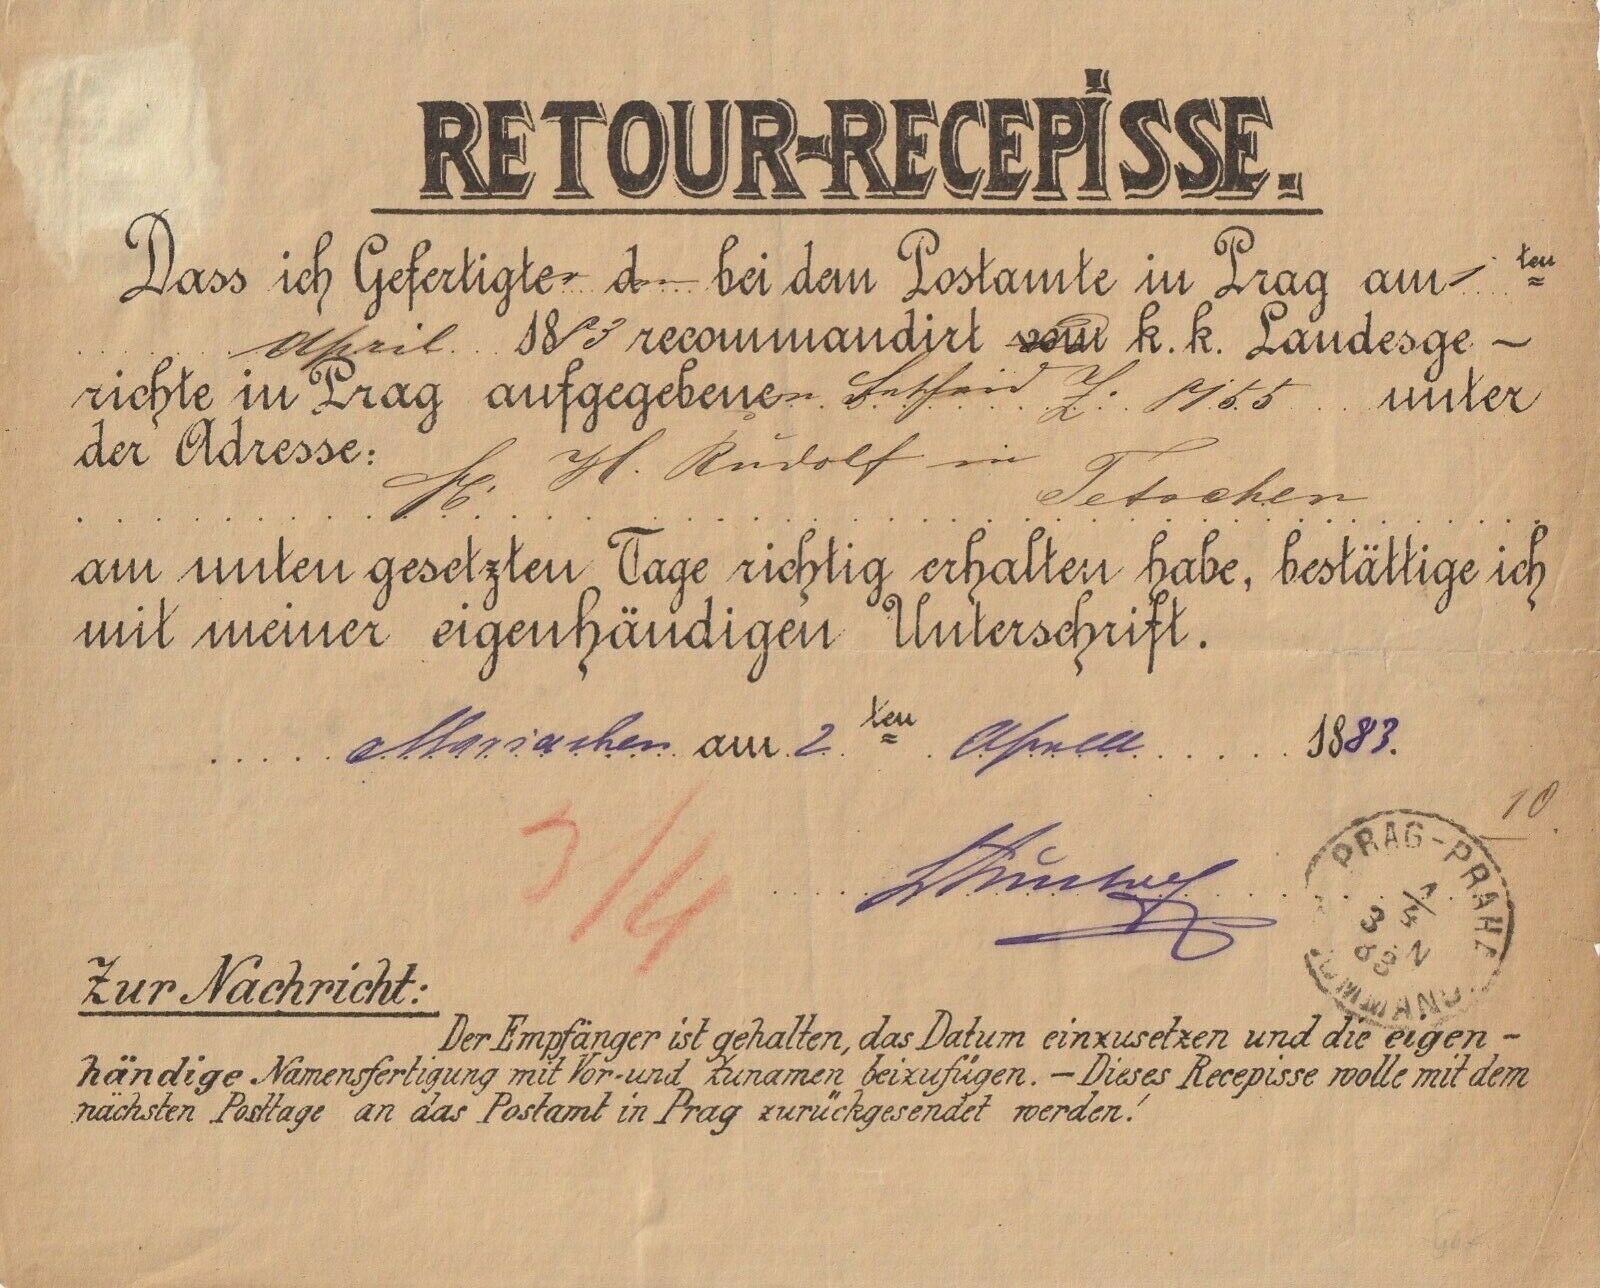 RETOUR-RECEPISSE.
Dass ich Gefertigter d bei dem Postamte in Prag am 1 ten
April 1883 recommandirt vom k. k. Landesge-
richte in Prag aufgegebenen Bescheid Z. unter
der Adresse: H. Rudolf in Tetschen
am unten gesetzten Tage richtig erhalten habe, bestättige ich
mit meiner eigenhändigen Unterschrift.
am 2 ten April 1883.
10
3/4
PRAG-PRAHA
1/4
83
Zur Nachricht:
Der Empfänger ist gehalten, das Datum einzusetzen und die eigen-
händige Namensfertigung mit Vor- und Zunamen beizufügen. - Dieses Recepisse wolle mit dem
nächsten Posttage an das Postamt in Prag zurückgesendet werden!